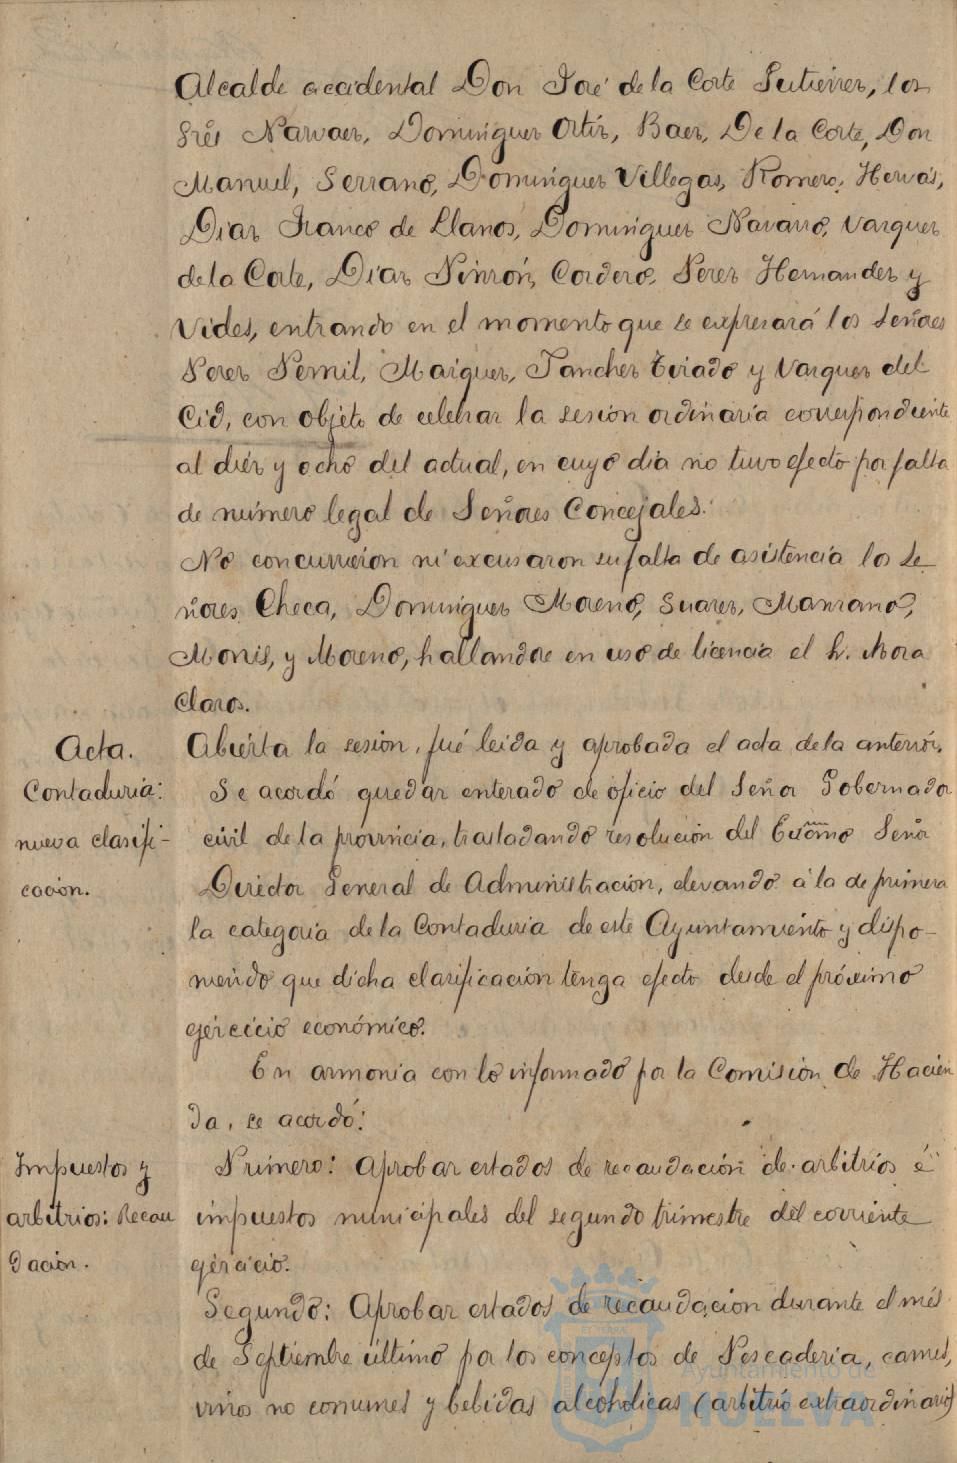 Alcalde accidental Don José de la Corte Gutierrez, los
Sres Narvaez, Dominguez Ortiz, Baez, De la Corte, Don
Manuel, Serrano, Dominguez Villegas, Romero, Hervás,
Diaz Franco de Llanos, Dominguez Navarro, Vazquez
de la Corte, Diaz Pinzón, Cordero, Perez Hernandez y
Vides, entrando en el momento que se expresará los Señores
Perez Pemil, Maiquez, Sanchez Tirado y Vazquez del
Cid, con objeto de celebrar la sesion ordinaria correspondiente
al diez y ocho del actual, en cuyo dia no tuvo efecto por falta
de número legal de Señores Concejales.
No concurrieron ni excusaron su falta de asistencia los Se
ñores Checa, Dominguez Moreno, Suarez, Manzano,
Monis, y Moreno, hallandose en uso de licencia el Sr. Mora
Claros.
Acta.
Abierta la sesion, fué leida y aprobada el acta de la anterior.
Contaduria:
nueva clasifi-
cacion.
Se acordó quedar enterado de oficio del Señor Gobernador
civil de la provincia, trasladando resolucion del Excmo Señor
Director General de Administracion, elevando á la de primera
la categoria de la Contaduria de este Ayuntamiento y dispo-
niendo que dicha clasificación tenga efecto desde el próximo
ejercicio económico.
En armonia con lo informado por la Comisión de Hacien
da, se acordó:
Impuestos y
arbitrios: Recau
dacion.
Primero: Aprobar estados de recaudación de arbitrios é
impuestos municipales del segundo trimestre del corriente
ejercicio.
Segundo: Aprobar estados de recaudacion durante el més
de Septiembre último por los conceptos de Pescaderia, carnes,
vinos no comunes y bebidas alcoholicas (arbitrio extraordinario)
Ayuntamiento de
HUELVA